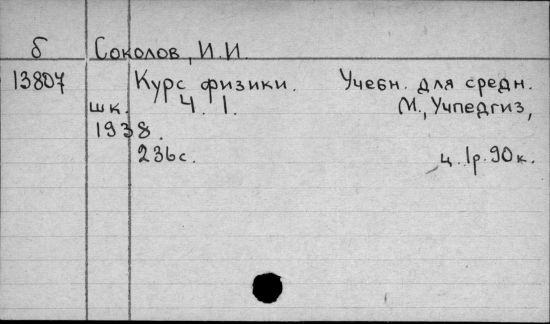 б Соколов, И.И.
13807 Курс физики. Учебн. для средн.
шк. Ч. 1. М., Учпедгиз,
1938.
236с. ц. 1р. 90к.